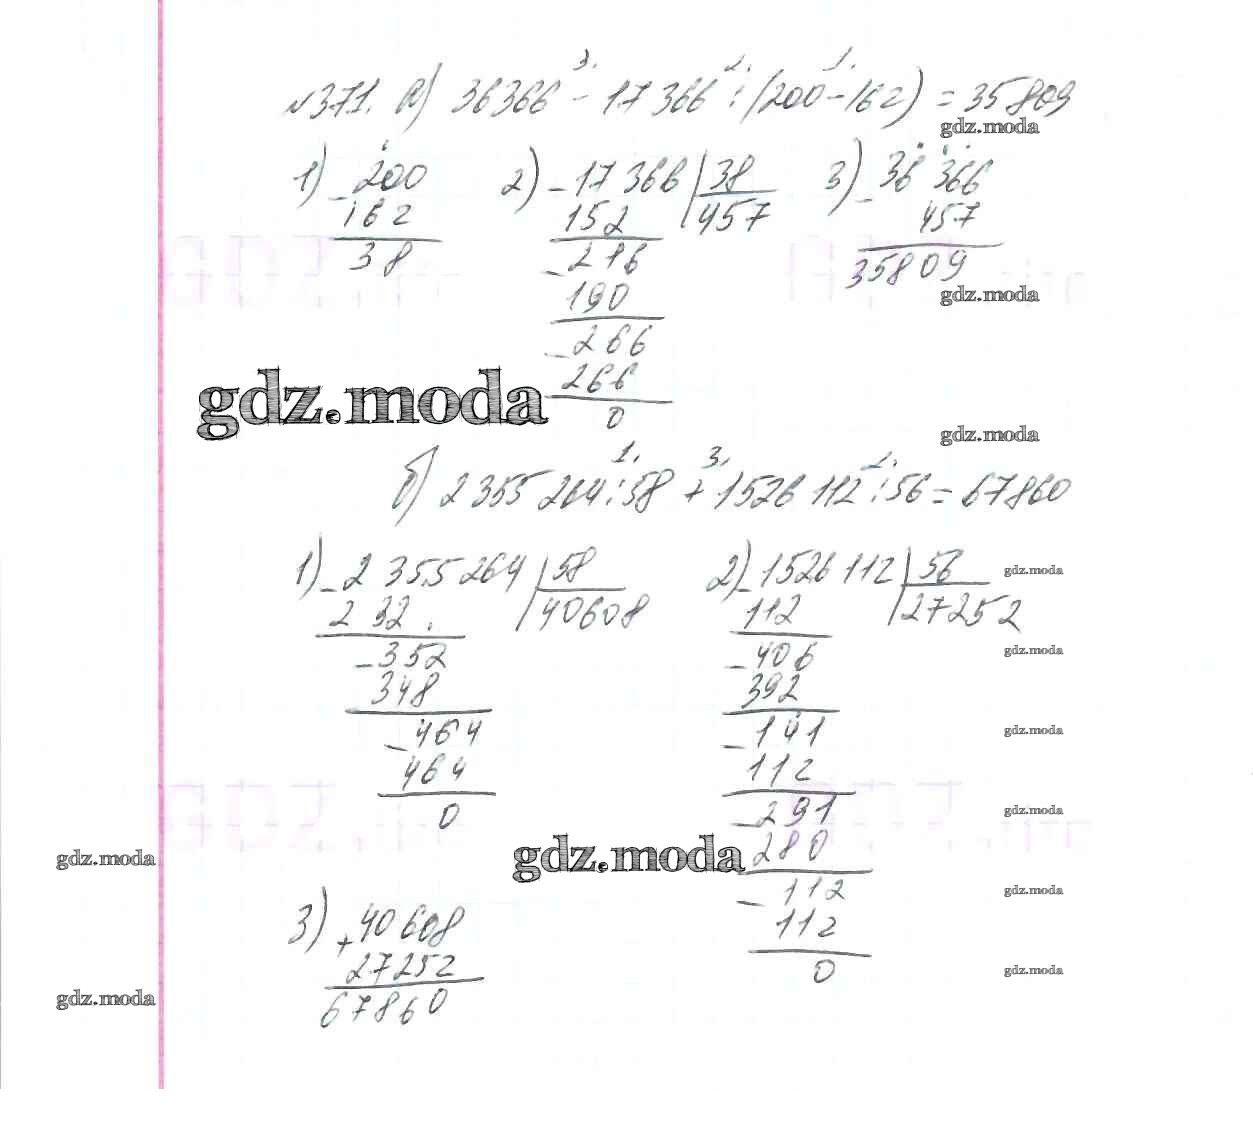 №371. а) 36366 - 17366 : (200-162) = 35809
3. 2. 1.
gdz.moda
1) - 200
162
38
2) - 17366 | 38
152 457
- 216
190
- 266
266
0
3) - 36366
457
35809
gdz.moda
gdz.moda
gdz.moda
б) 2355264 : 58 + 1526112 : 56 = 67860
1. 3. 2.
1) - 2355264 | 58
232 40608
- 352
348
- 464
464
0
2) - 1526112 | 56
112 27252
- 406
392
- 141
112
- 291
280
- 112
112
0
gdz.moda
gdz.moda
gdz.moda
gdz.moda
gdz.moda
gdz.moda
gdz.moda
gdz.moda
3) + 40608
27252
67860
gdz.moda